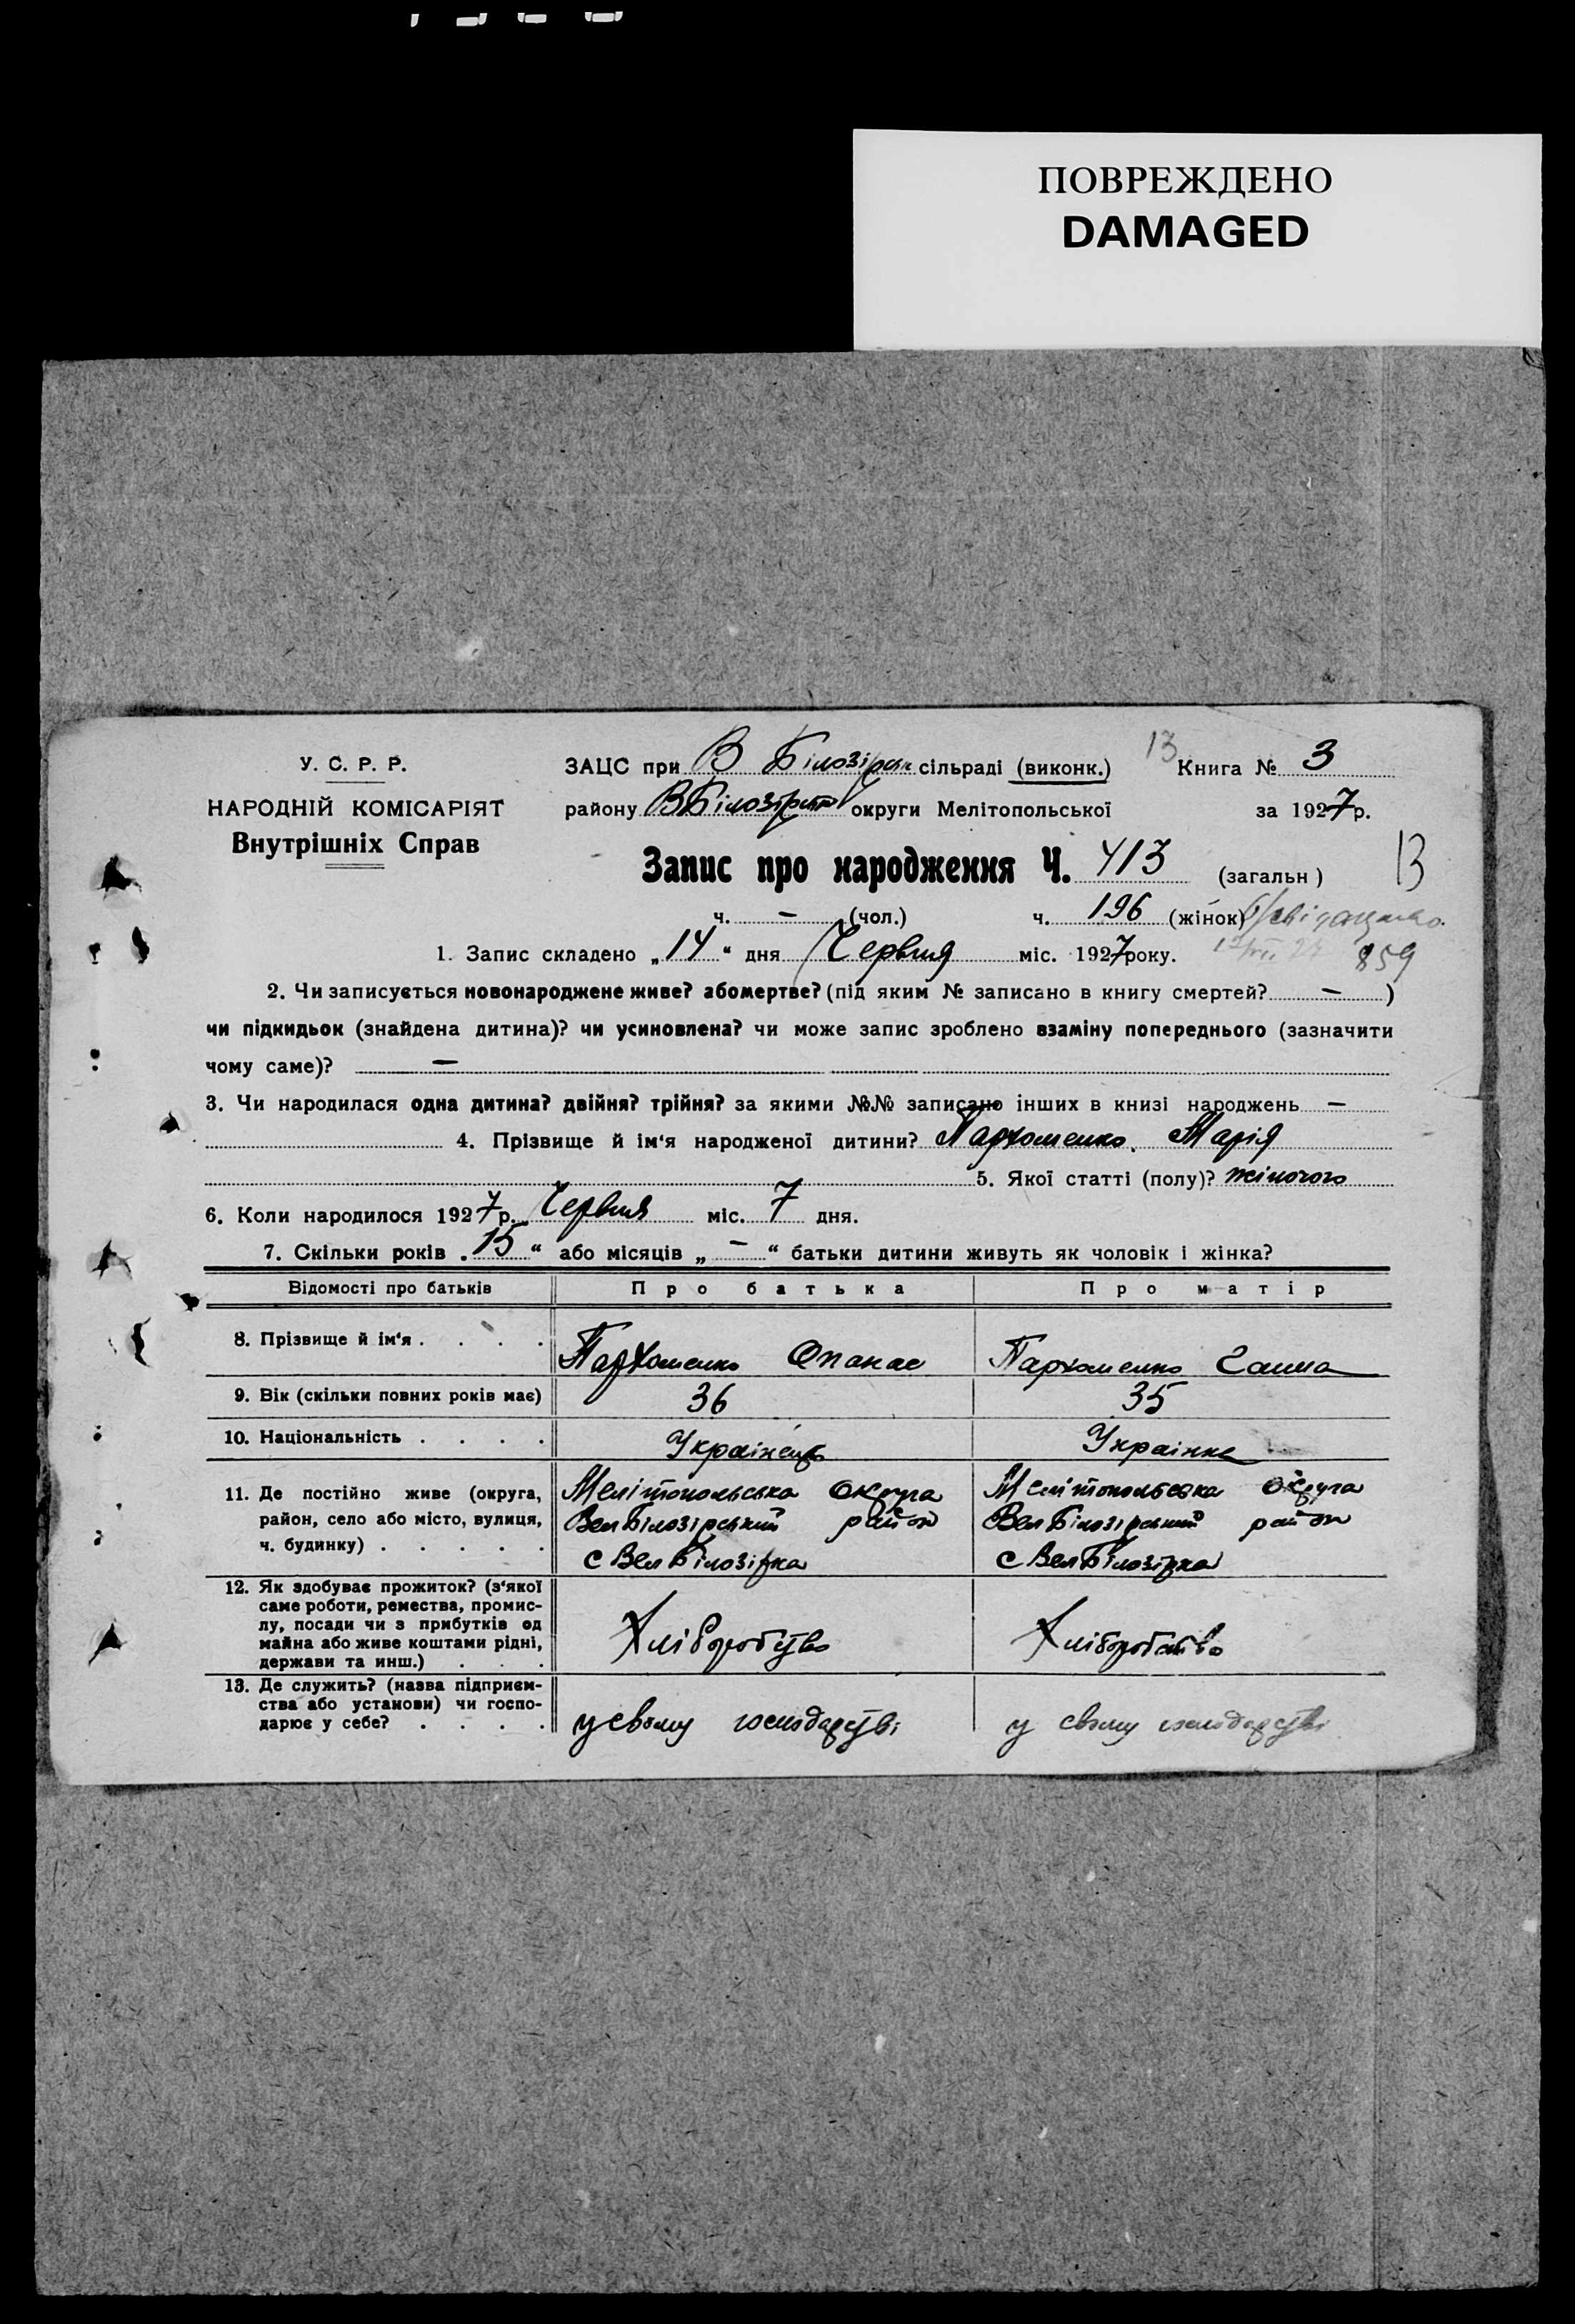 ПОВРЕЖДЕНО
DAMAGED
У. С. Р. Р.
НАРОДНІЙ КОМІСАРІЯТ
Внутрішніх Справ
ЗАЦС при В Білозірськ сільраді (виконк.)
13
Книга № 3
району ВБілозірськ округи Мелітопольської
за 1927р.
Запис про народження Ч. 413 (загальн)
13
ч. — (чол.) ч. 196 (жінок)
1. Запис складено „14“ дня Червня міс. 1927року.
859
2. Чи записується новонароджене живе? або мертве? (під яким № записано в книгу смертей? — )
чи підкидьок (знайдена дитина)? чи усиновлена? чи може запис зроблено взаміну попереднього (зазначити
чому саме)? —
3. Чи народилася одна дитина? двійня? трійня? за якими №№ записано інших в книзі народжень —
4. Прізвище й ім‘я народженої дитини? Пархоменко Марія
5. Якої статті (полу)? жіночого
6. Коли народилося 1927р. Червня міс. 7 дня.
7. Скільки років „15“ або місяців „—“ батьки дитини живуть як чоловік і жінка?
Відомості про батьків
Про батька
Про матір
8. Прізвище й ім‘я . . . .
Пархоменко Опанас
Пархоменко Ганна
9. Вік (скільки повних років має)
36
35
10. Національність . . . .
Українець
Українка
11. Де постійно живе (округа,
район, село або місто, вулиця,
ч. будинку) . . . . .
Мелітопольська округа
Вел Білозірський район
с Вел Білозірка
Мелітопольська округа
Вел Білозірський район
с Вел Білозірка
12. Як здобуває прожиток? (з‘якої
саме роботи, ремества, промис-
лу, посади чи з прибутків од
майна або живе коштами рідні,
держави та инш.) . . .
Хліборобство
Хліборобство
13. Де служить? (назва підприєм-
ства або установи) чи госпо-
дарює у себе? . . . .
у свому господарстві
у свому господарстві